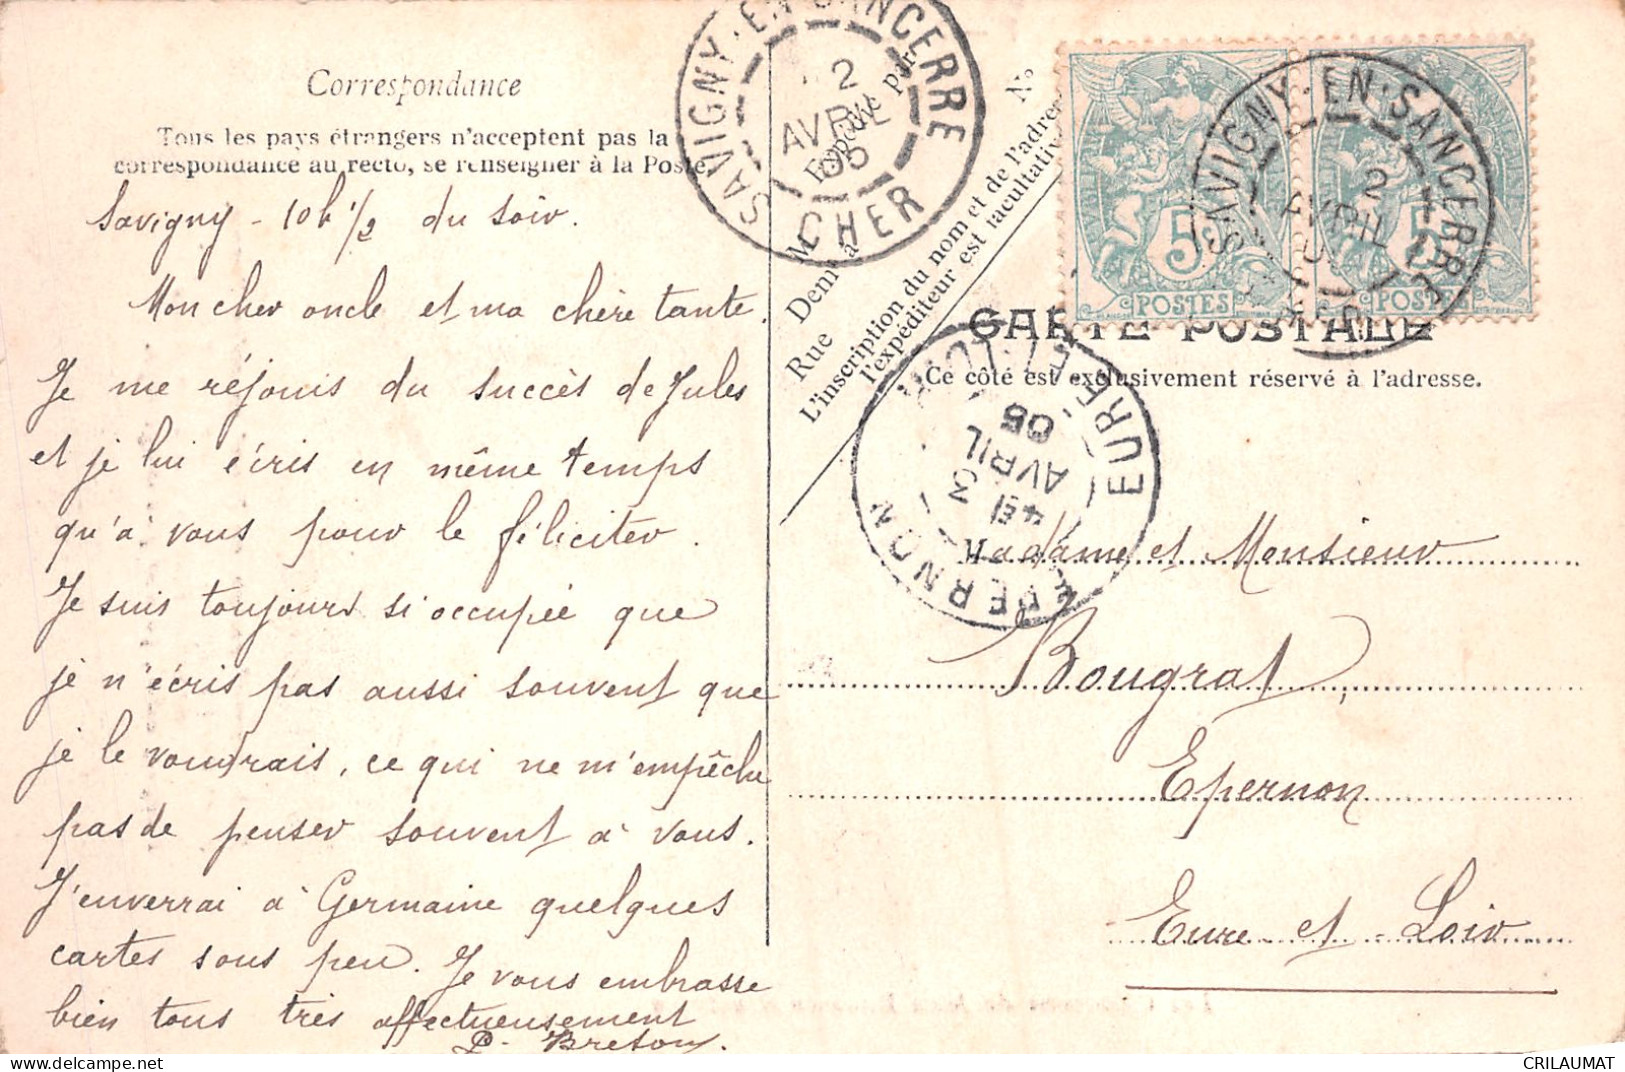 Correspondance
Tous les pays étrangers n'acceptent pas la
correspondance au recto, se renseigner à la Poste.
Savigny - 10h 1/2 du soir.
Mon cher oncle et ma chère tante.
Je me réjouis du succès de Jules
et je lui écris en même temps
qu'à vous pour le féliciter.
Je suis toujours si occupée que
je n'écris pas aussi souvent que
je le voudrais, ce qui ne m'empêche
pas de penser souvent à vous.
J'enverrai à Germaine quelques
cartes sous peu. Je vous embrasse
bien tous très affectueusement
P. Breton.
SAVIGNY-EN-SANCERRE
2
AVRIL
05
CHER
Expédié par
M
Demt à
Rue
N°
L'inscription du nom et de l'adresse
l'expéditeur est facultative
5c
POSTES
5c
POSTES
SAVIGNY-EN-SANCERRE
2
AVRIL
CARTE POSTALE
Ce côté est exclusivement réservé à l'adresse.
EPERNON
4E
3
AVRIL
05
EURE-ET-LOIR
Madame et Monsieur
Bougrat,
Epernon
Eure-et-Loir
CRILAUMAT